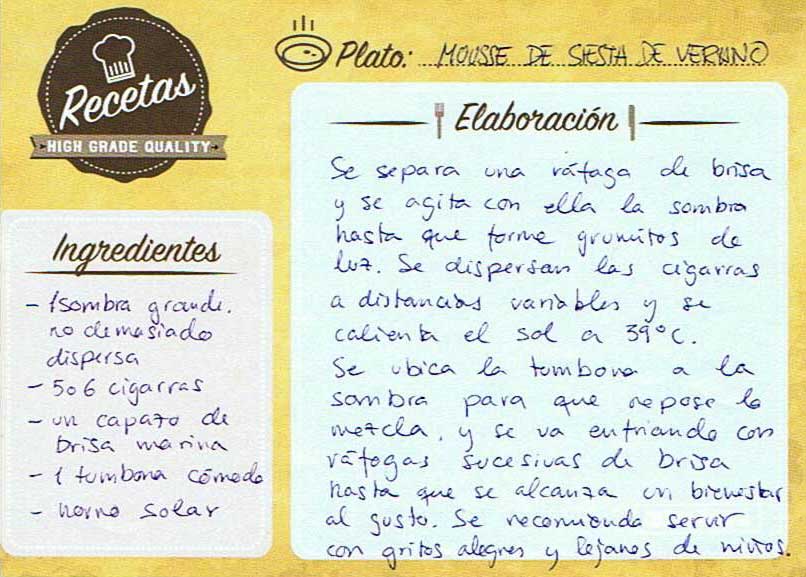 Recetas
HIGH GRADE QUALITY
Plato: MOUSSE DE SIESTA DE VERANO
Ingredientes
- 1 sombra grande,
no demasiado
dispersa
- 5 o 6 cigarras
- un capazo de
brisa marina
- 1 tumbona cómoda
- horno solar
Elaboración
Se separa una ráfaga de brisa
y se agita con ella la sombra
hasta que forme grumitos de
luz. Se dispersan las cigarras
a distancias variables y se
calienta el sol a 39°C.
Se ubica la tumbona a la
sombra para que repose la
mezcla, y se va enfriando con
ráfagas sucesivas de brisa
hasta que se alcanza un bienestar
al gusto. Se recomienda servir
con gritos alegres y lejanos de niños.